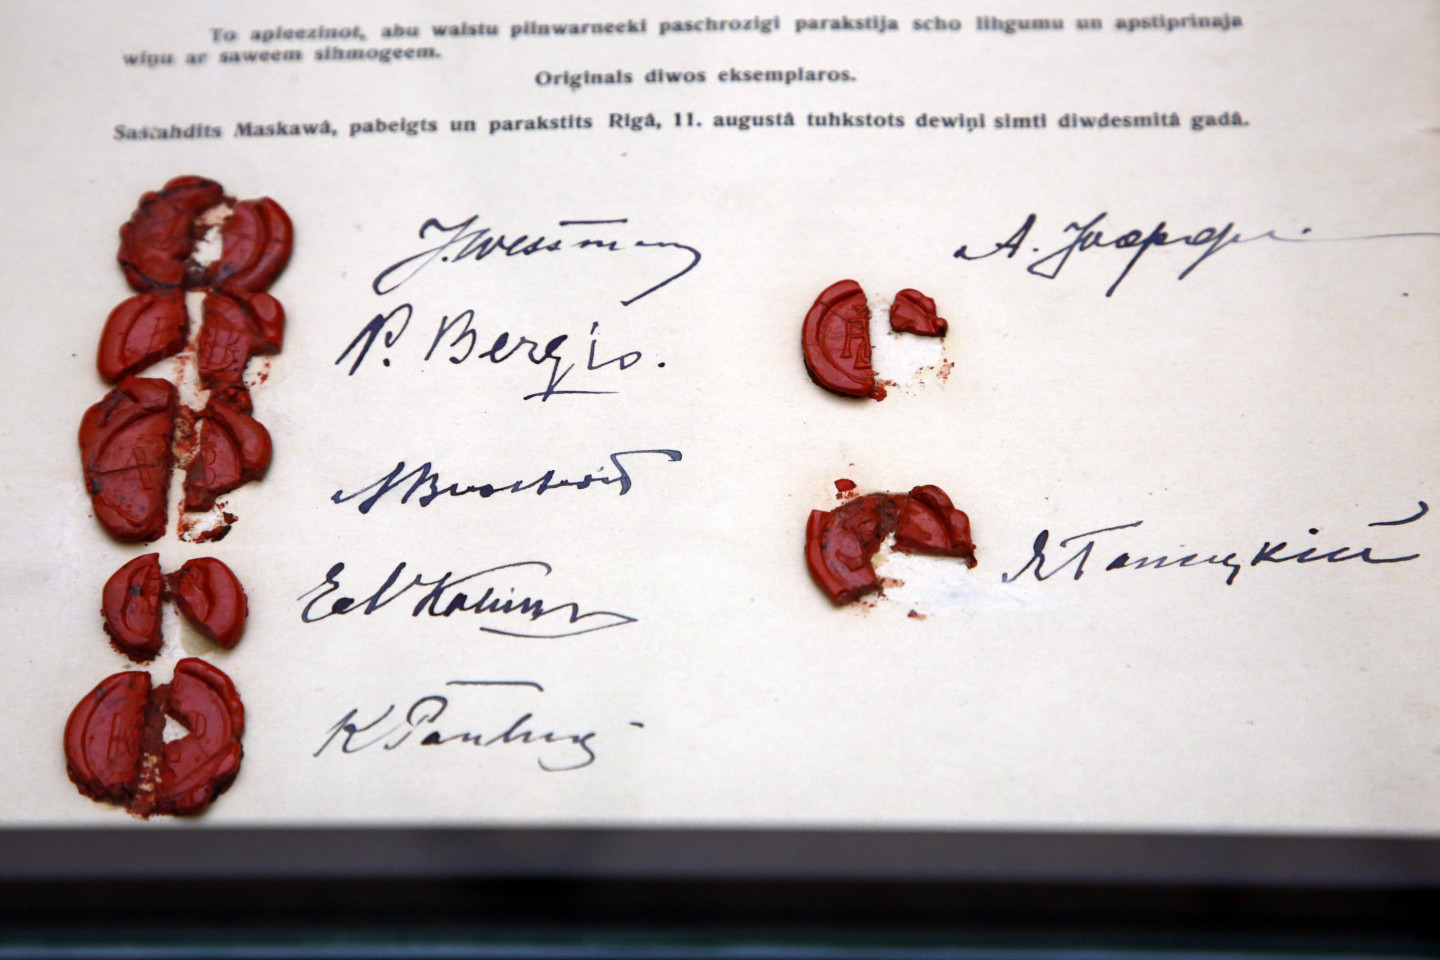 To apleezinot, abu walstu pilnwarneeki paschrozigi parakstija scho lihgumu un apstiprinaja
wiņu ar saweem sihmogeem.
Oriģinals diwos eksemplaros.
Sastahdits Maskawâ, pabeigts un parakstits Rigâ, 11. augustâ tuhkstots dewiņi simti diwdesmitâ gadâ.
J. Wessman
А. Иоффе
P. Bergis.
A
B
Я Ганецкий
K
P